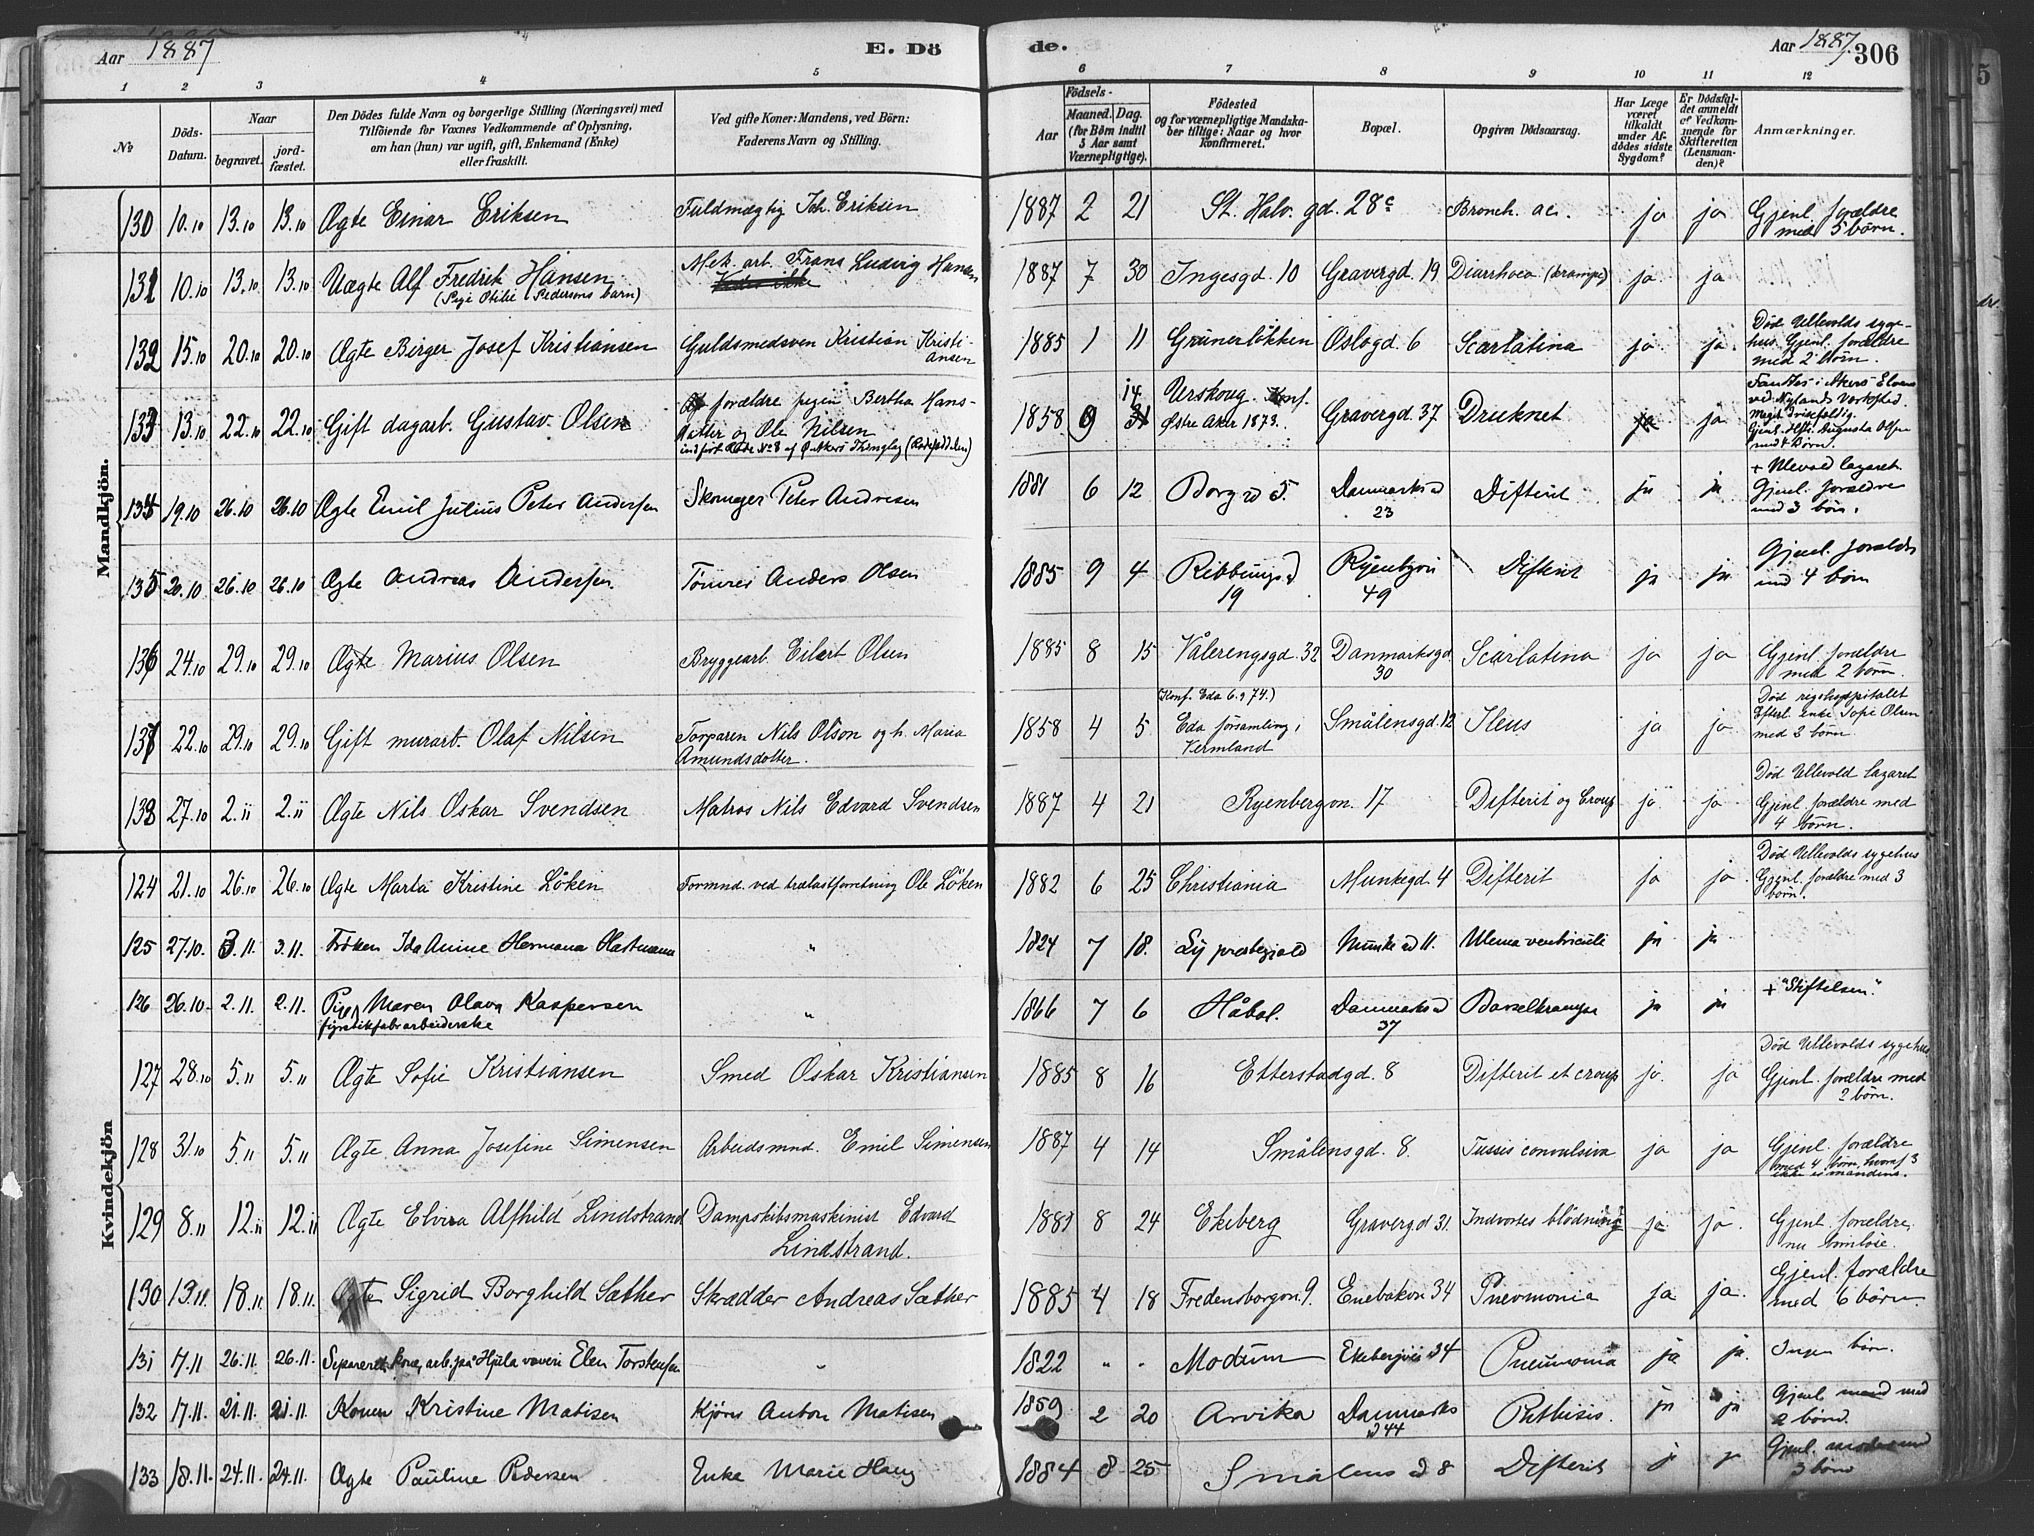 Aar 1887 E. Dö
de. Aar 1887. 306
1 2 3 4 5 6 7 8 9 10 11 12
No
Döds-Datum.
Naar
begravet. jordfæstet.
Den Dödes fulde Navn og borgerlige Stilling (Næringsvei) med
Tilföiende for Voxnes Vedkommende af Oplysning,
om han (hun) var ugift, gift, Enkemand (Enke)
eller fraskilt.
Ved gifte Koner: Mandens, ved Börn:
Faderens Navn og Stilling.
Födsels-
Aar
Maaned. Dag.
(for Børn indtil
5 Aar samt
Værnepligtige).
Födested
og for værnepligtige Mandska-
ber tillige: Naar og hvor
konfirmeret.
Bopæl.
Opgiven Dödsaarsag.
Har Læge
været
tilkaldt
under Af-
dödes sidste
Sygdom?
Er Dödsfal-
det anmeldt
af Vedkom-
mende for
Skifteretten
(Lensman-
den)?
Anmærkninger.
Mandkjön.
130 10.10 13.10 13.10 Ægte Einar Eriksen Fuldmægtig Joh. Eriksen 1887 2 21 St. Halv. gd. 28c Bronch. ac. ja ja Gjenl. forældre
med 5 børn.
131 10.10 13.10 13.10 Uægte Alf Fredrik Hansen Mek. arb. Frans Ludvig Hansen 1887 7 30 Ingesgd. 10 Gravergd. 19 Diarrhoea (krampe) ja ja
(Pige Otilie Pedersens barn)
132 15.10 20.10 20.10 Ægte Birger Josef Kristiansen Guldsmedsven Kristian Kristi-
ansen 1885 1 11 Grünerløkken Oslogd. 6 Scarlatina ja ja Død Ullevolds syge-
hus. Gjenl. forældre
med 2 børn.
133 13.10 22.10 22.10 Gift dagarb. Gustav Olsen forældre pigen Bertha Hans-
datter og Ole Nilsen 1858 9 14 Urskoug. Konf.
Østre Aker 1873. Gravergd. 37 Druknet ja ja Fantes i Akers Elven
ved Nylands Værksted.
Gjenl. Augusta Olsen
med 4 Børn.
134 19.10 26.10 26.10 Ægte Emil Julius Peter Andersen Skomager Peter Andresen 1881 6 12 Borggd 5. Danmarksgd
23 Difterit ja ja + Ulevold lazaret.
Gjenl. forældre
med 3 børn.
135 20.10 26.10 26.10 Ægte Andreas Andersen Tømrer Anders Olsen 1885 9 4 Ribbungsgd
19 Ryenbgvn
49 Difterit ja ja Gjenl. forældre
med 4 børn
136 24.10 29.10 29.10 Ægte Marius Olsen Bryggearb. Eilert Olsen 1885 8 15 Vålerengsgd. 32 Danmarksgd
30 Scarlatina ja ja Gjenl. forældre
med 2 børn.
137 22.10 29.10 29.10 Gift murarb. Olaf Nilsen Torparen Nils Olson og h. Maria
Amundsdotter. 1858 4 5 (Konf. Eda 6.9 74.)
Eda församling i
Vermland Smålensgd. 12 Ileus ja ja Død rigshospitalet
Efterl. enke Sofie Olsen
med 3 børn.
138 27.10 2.11 2.11 Ægte Nils Oskar Svendsen Matros Nils Edvard Svendsen 1887 4 21 Ryenbergvn. 17 Difterit og Croup ja ja Død Ullevold lazaret
Gjenl. forældre med
4 børn.
Kvindekjön
124 21.10 26.10 26.10 Ægte Marta Kristine Løken Formnd. ved trælastforretning Ole Løken 1882 6 25 Christiania Munkegd. 4 Difterit ja ja Død Ullevolds sygehus
Gjenl. forældre med 3
børn.
125 27.10. 3.11. 3.11. Frøken Ida Anine Hermana Hartmann " 1824 7 18. Ly præstegjeld Munkegd 11. Ulcus ventriculi ja ja
126 26.10. 2.11. 2.11. Pige, Maren Olava Kaspersen
fyrstikfabrarbeiderske " 1866 7 6 Håbøl. Danmarksgd
37 Barselkrampe ja ja + "Stiftelsen."
127 28.10 5.11 5.11 Ægte Sofie Kristiansen Smed Oskar Kristiansen 1885 8 16 Etterstadgd. 8 Difterit et croup ja. ja Død Ullevolds sygehus
Gjenl. forældre med
2 børn.
128 31.10 5.11 5.11 Ægte Anna Josefine Simensen Arbeidsmnd. Emil Simensen 1887 4 14 Smålensgd. 8. Tussis convulsiva ja ja Gjenl. forældre
med 4 børn, hvoraf 3
ikke er mandens.
129 8.11 12.11 12.11 Ægte Elvira Alfhild Lindstrand Dampskibsmaskinist Edvard
Lindstrand. 1883 8 24 Ekeberg Gravergd 31. Indvortes blødning ja ja. Gjenl. forældre,
nu børnløse.
130 13.11. 18.11. 18.11. Ægte Sigrid Borghild Sæther Skrædder Andreas Sæther 1885 4 18 Fredensborgvn. 9. Enebakvn 34 Pneumonia ja ja. Gjenl. forældre
med 6 børn.
131 17.11 26.11. 26.11. Separeret kone, arb. på Hjula væveri Elen Torstensen " 1822 " " Modum Ekebergvei 34 Pneumonia ja ja. Ingen børn.
132 17.11. 21.11. 21.11. Konen Kristine Matisen Kjøres Anton Matisen 1859 2 20 Arvika Danmarks
gd 44 Phthisis. ja ja Gjenl. mand med
2 børn.
133 18.11. 24.11. 24.11. Ægte Pauline Pedersen Enke Marie Haug 1884 8 25 Smålensgd 8 Difterit ja ja Gjenl. moder med
3 børn